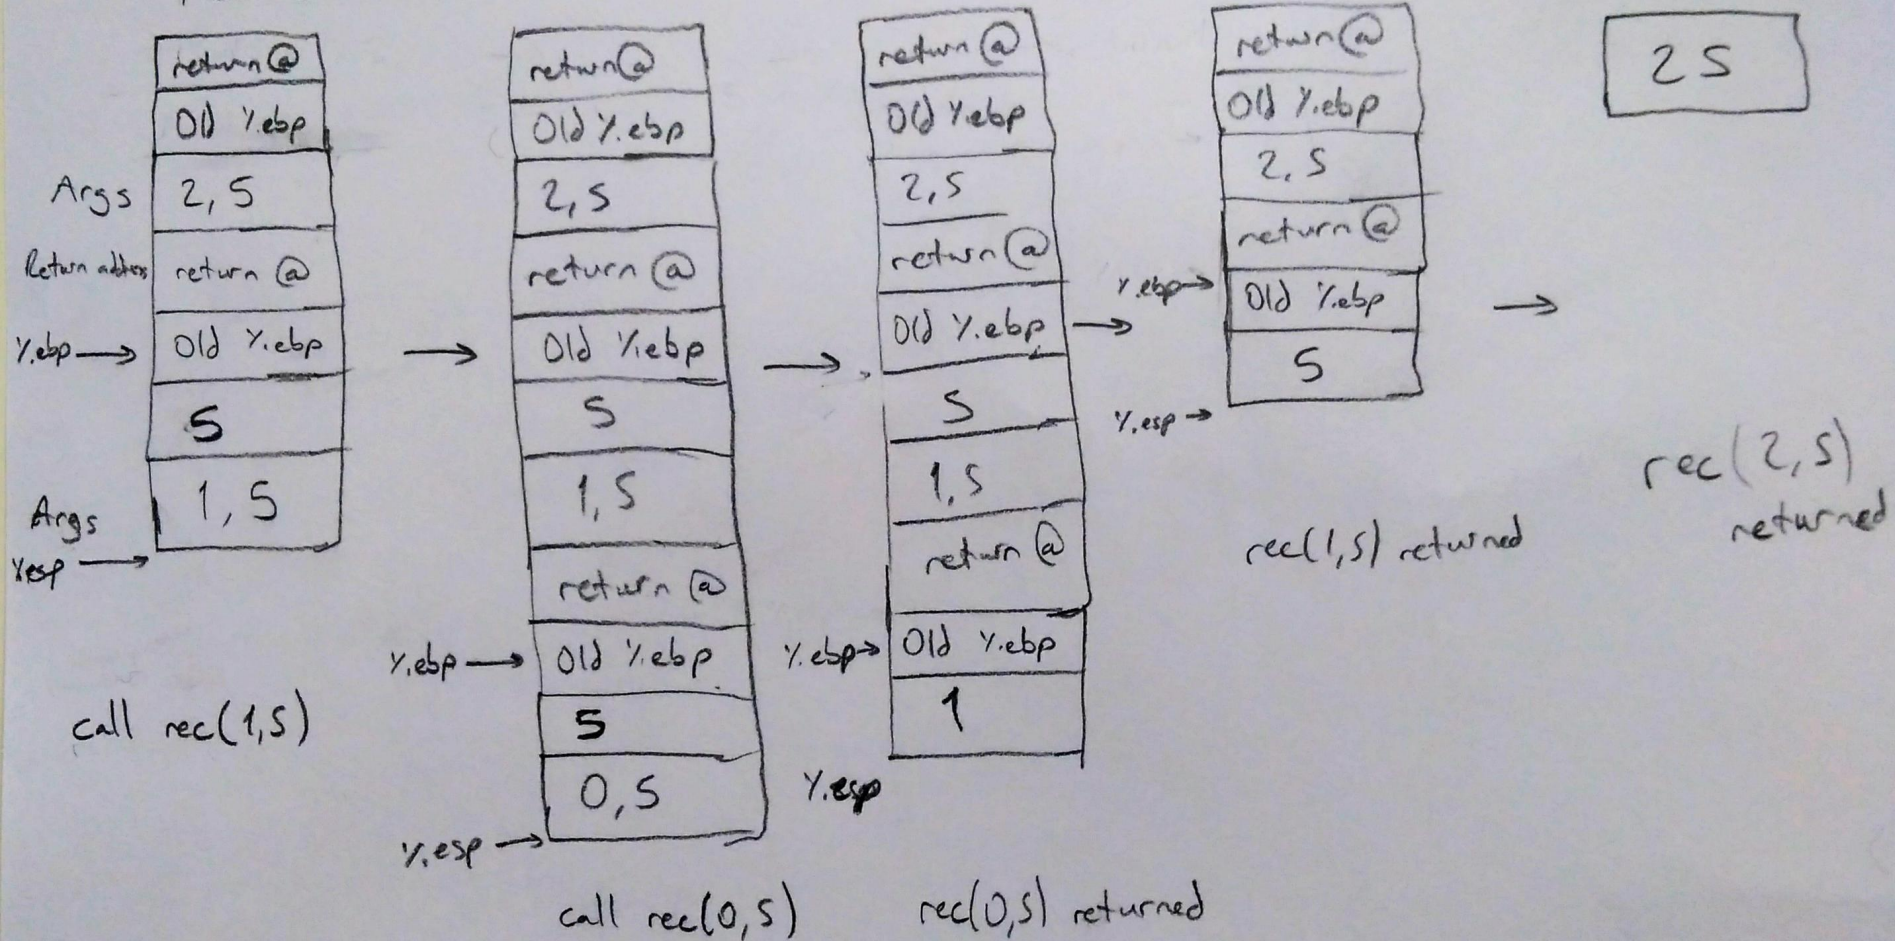 return @
Old %ebp
Args 2, 5
Return address return @
%ebp → Old %ebp
5
Args 1, 5
%esp →
call rec(1,5)
→
return @
Old %ebp
2, 5
return @
Old %ebp
5
1, 5
return @
%ebp → Old %ebp
5
0, 5
%esp →
call rec(0,5)
→
return @
Old %ebp
2, 5
return @
Old %ebp
5
1, 5
return @
%ebp → Old %ebp
1
%esp
rec(0,5) returned
→
return @
Old %ebp
2, 5
return @
%ebp → Old %ebp
5
%esp →
rec(1,5) returned
→
25
rec(2,5)
returned